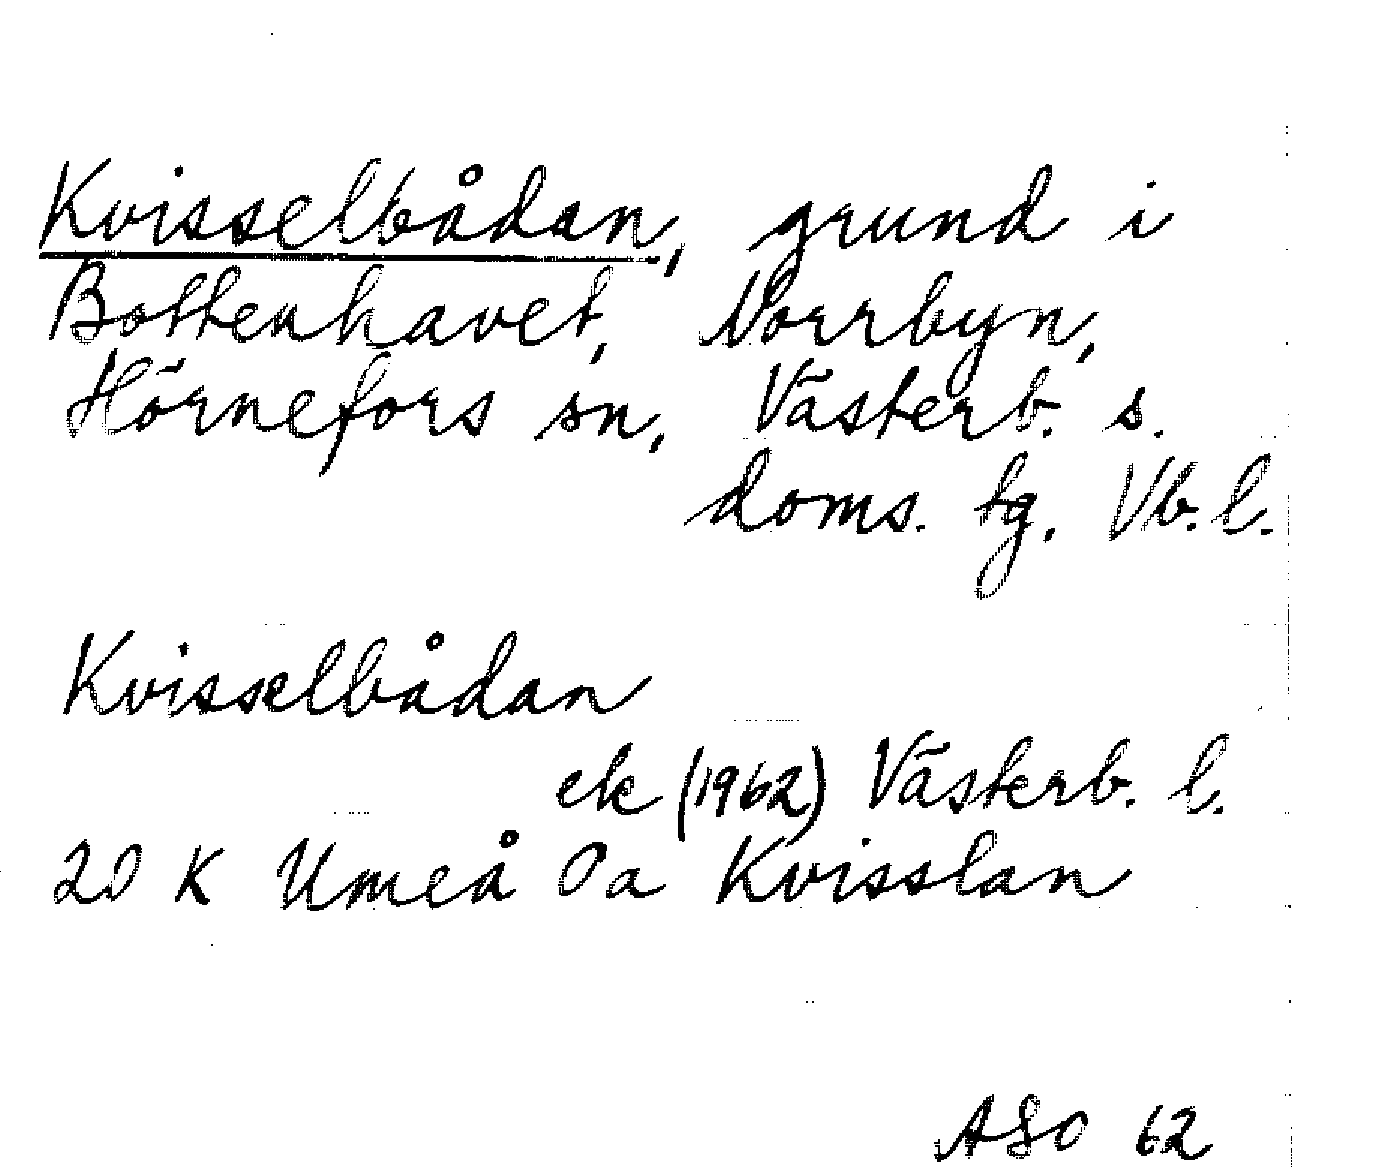 Kvisselbådan, grund i
Bottenhavet, Norrbyn,
Hörnefors sn, Västerb. s.
doms. tg. Vb. l.
Kvisselbådan
ek (1962) Västerb. l.
20 K Umeå Oa Kvisslan
ASO 62